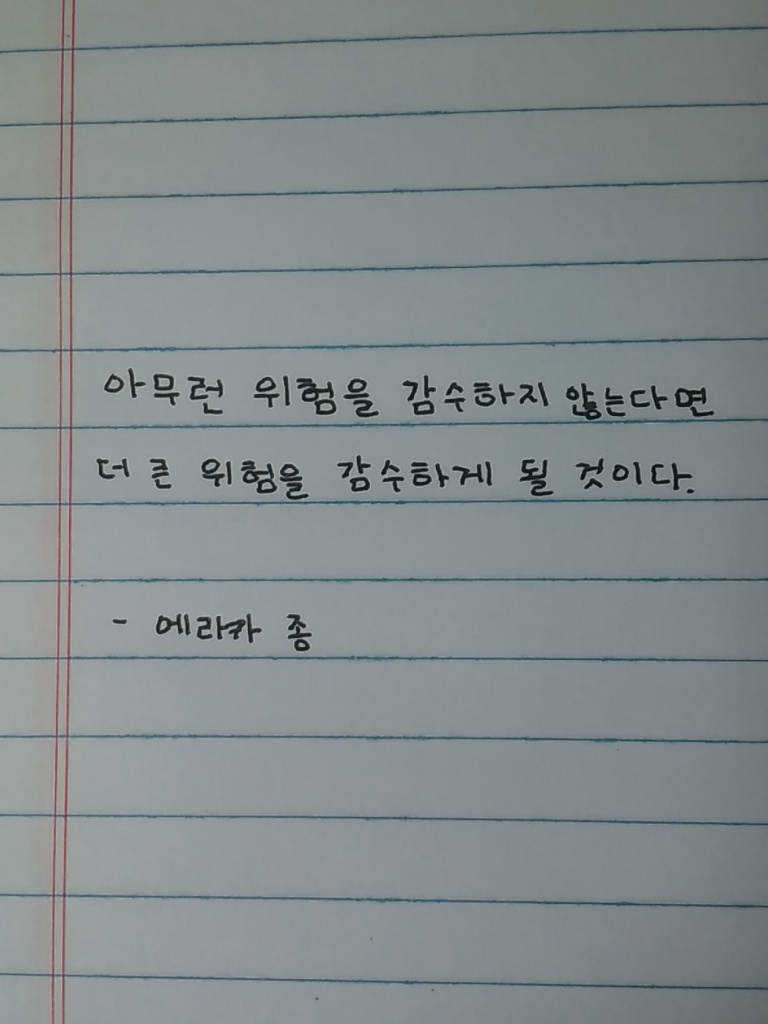 아무런 위험을 감수하지 않는다면
더 큰 위험을 감수하게 될 것이다.
- 에라카 종